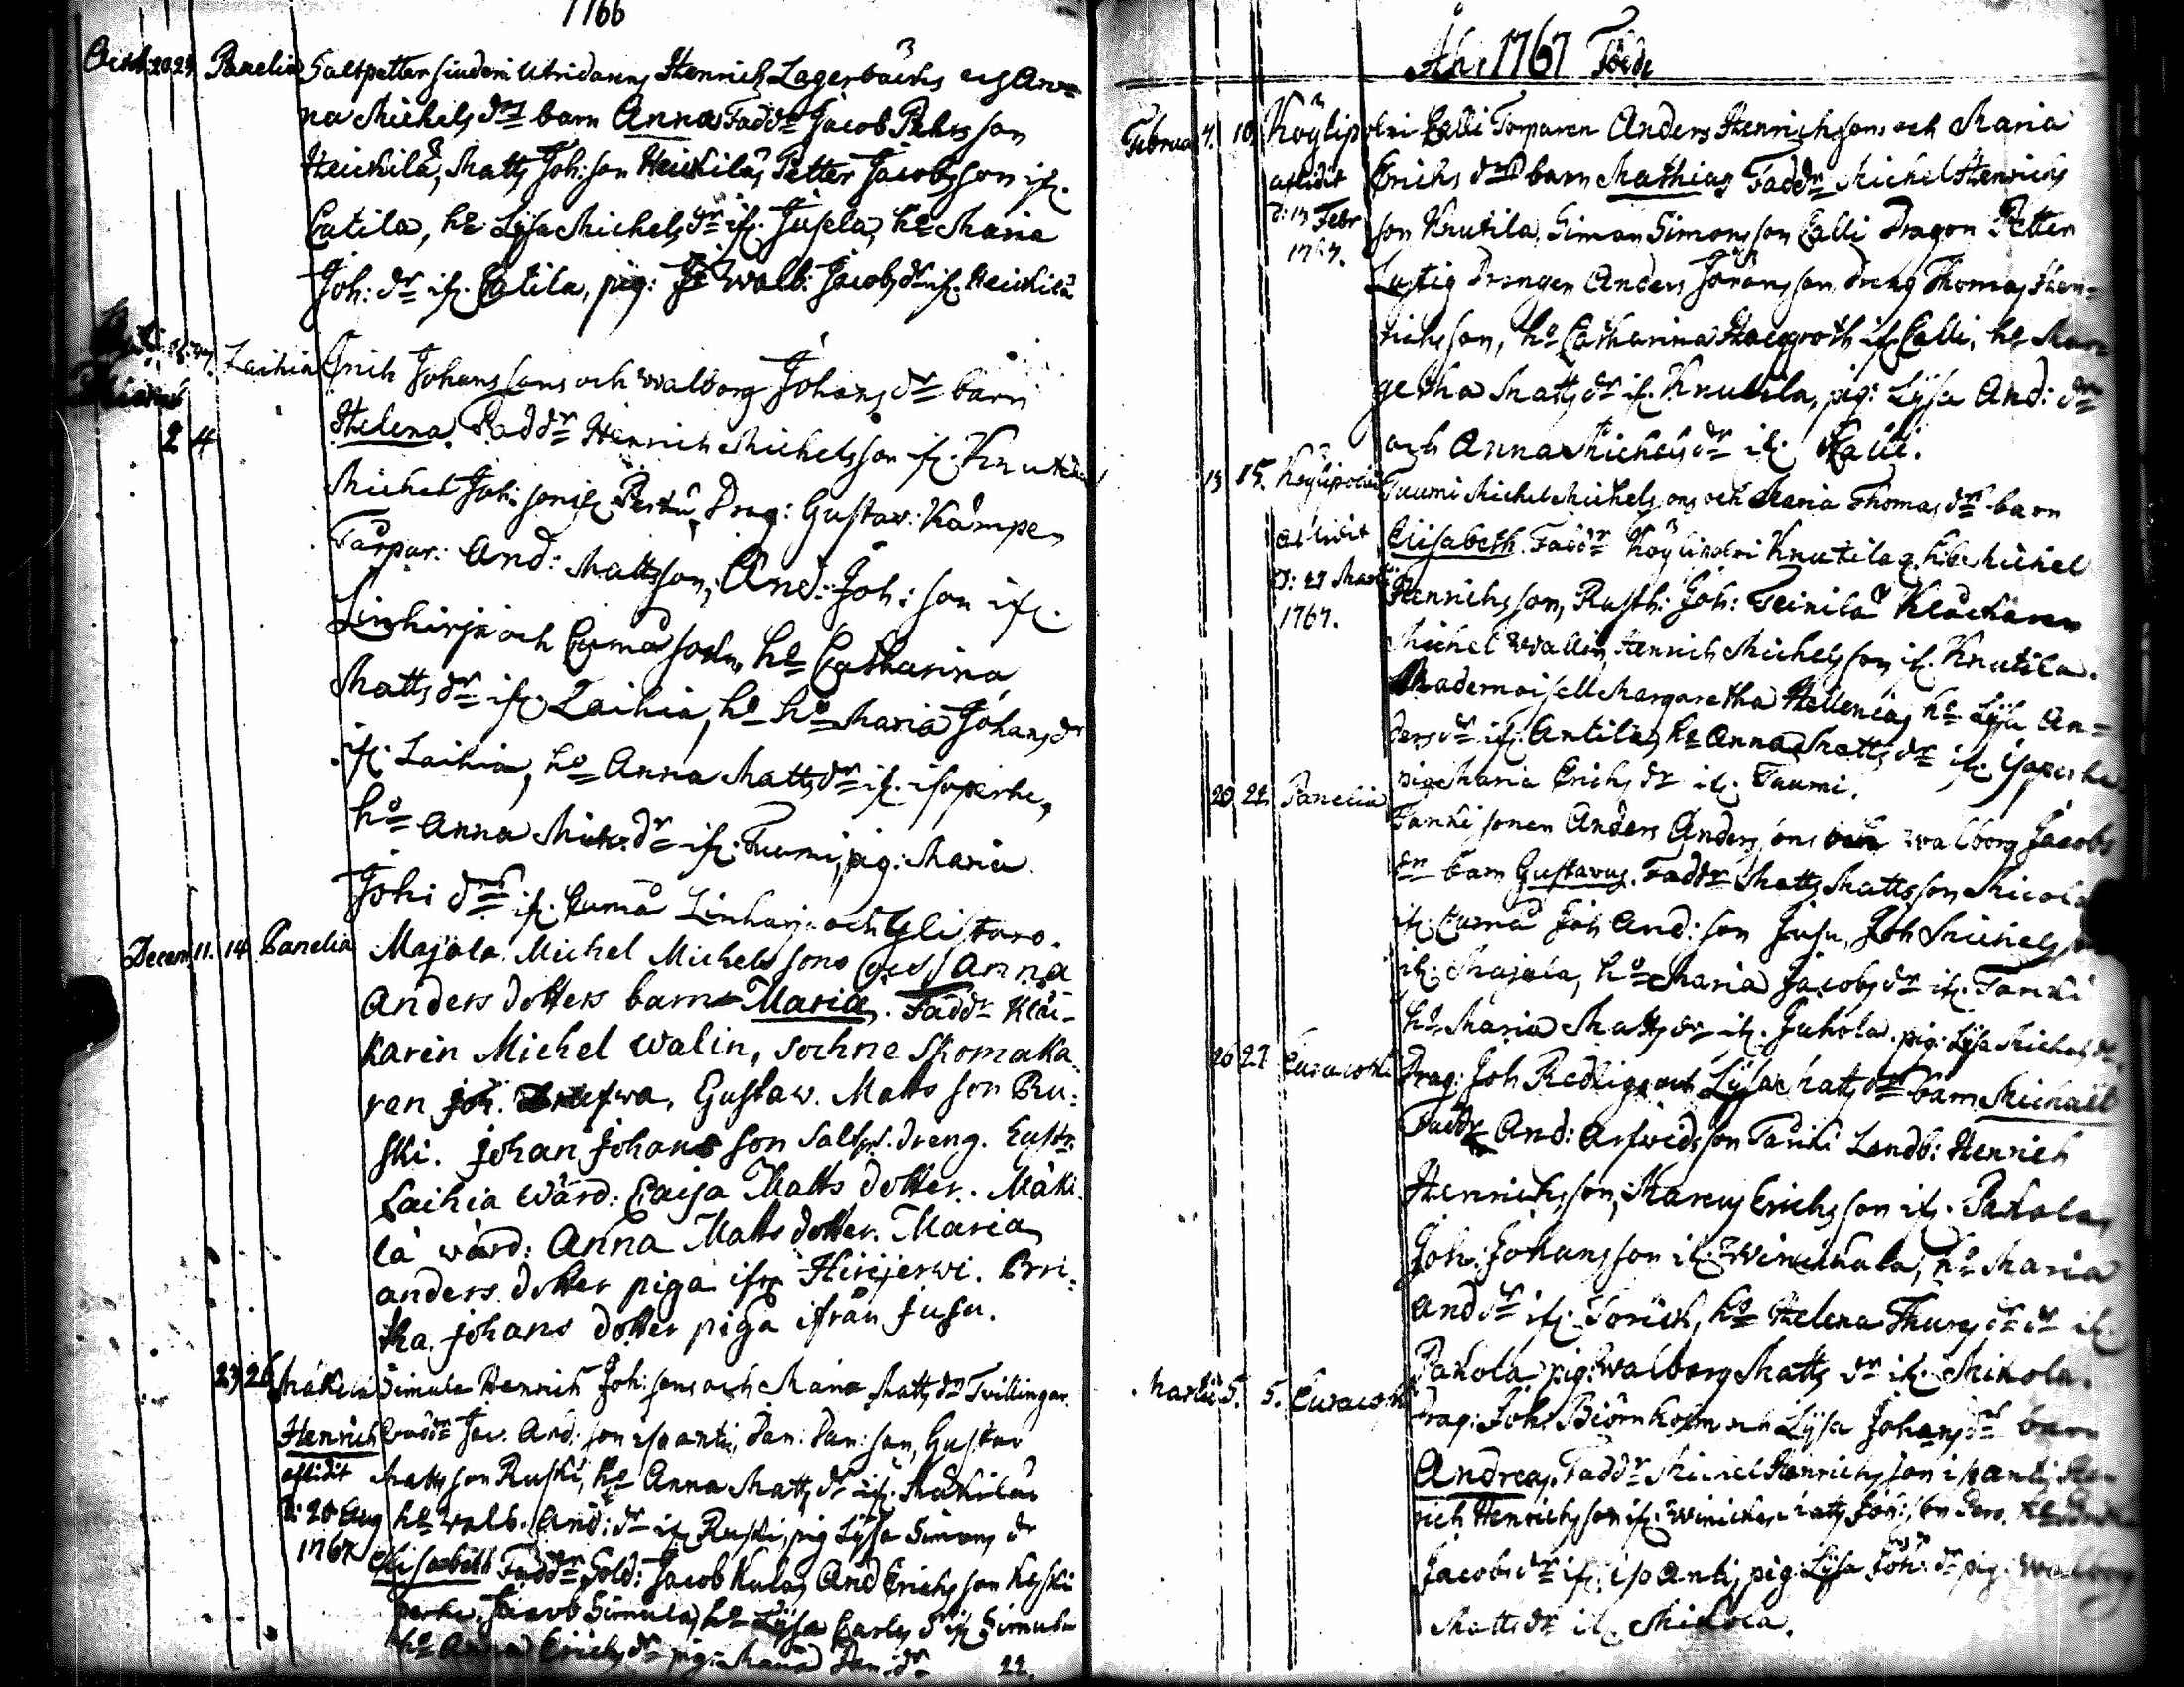 1766
Octob. 20 24 Panelia Saltpetter siuderi Utridarens Henrich Lagerbäcks och An=
na Michels dr barn Anna Fadd: Jacob Pehrsson
Heickilä, Matts Joh: son Heickilä, Petter Jacobsson ifr.
Catila, h: Lysa Michels dr ifr. Jusela, h: Maria
Joh: dr ifr. Catila, pig: Walb: Jacobs dr ifr. Heickilä
Laihia Erich Johanssons och Walborg Johans dr barn
2 4 Helena. Fadd: Henrich Michelsson ifr. Knutila
Michel Joh: son ifr. Perttu, Drag: Gustav: Kämpe,
Tårpar: And: Mattsson, And: Joh: son ifr.
Linhirja och Eurnå sochn, h: Catharina
Matts dr ifr. Laihia, h: h: Maria Johans dr
ifr. Laihia, h: Anna Matts dr ifr. isoperhe,
h: Anna Mich: dr ifr. Tuumi, pig: Maria
Joh: dr ifr. Eurnå Linharja och Ylistaro.
Decem. 11. 14 Panelia Majala Michel Michels sons och Anna
Anders dotters barn Maria. Fadd: Kläc-
karen Michel Walin, sochne skomaka
ren Joh. Gustaw. Matts son Ru:
ski. Johan Johans son Saltp. dreng.
Laihia Wärd: Caisa Matts dotter. Mäki
lä wärd: Anna Matts dotter. Maria
anders dotter piga ifr Hirijerwi. Bri:
tha. Johans dotter piga ifrån Jusu.
23 26 Mäkelä Simula Henrich Joh: sons och Maria Matts dr Tvillingar.
Henrich Fadd: Jac. And: son isoantti, Dan: Dan: son, Gustav
aflidit Matts son Ruski, h: Anna Matts dr ifr. Mäkilä
d: 20 Aug h: Walb. And: dr ifr. Ruski, pig Lysa Simons dr
1767 Elisabeth Fadd: Sold: Jacob Kula, And Erichsson Kyski
perhe, Jacob Simula, h: Lysa Carls d ifr Simula
h: Anna Erichs dr pig: Maria Dan: dr
22.
Åhr 1767 Födde
Februa 7. 10 Köylipolvi Calli Torparen Anders Henrichsons och Maria
aflidit Erichs drs barn Mathias Fadd: Michel Henrichs
d: 13 Febr son Knutila, Simon Simonsson Calli Dragon Petter
1767. Lustig Drengen Anders Göransson dreng Thomas Hen=
richsson, h: Catharina Haegroth ifr. Calli, h: Mar=
getha Matts dr ifr. Knutila, pig: Lysa And: dr
och Anna Michels dr ifr. Kalli.
13 15. Köylipolvi Tuumi Michel Michelsons och Maria Thomas drs barn
aflidit Elisabeth. Fadd: Köylipolvi Knutila Michel
d: 27 Martii Henrichsson, Rusth: Joh: Teinilä Kläckaren
1767. Michel Wallin, Henrich Michelsson ifr. Knutila.
Mademoiselle Margaretha Hellenia, h: Lysa An=
ders dr ifr. Antila, h: Anna Matts dr ifr. isoperhe
pig: Maria Erichs dr ifr. Tuumi.
20 22 Panelia Tanki sonen Anders Andersons och Walborg Jacobs
dr barn Gustavus. Fadd: Matts Mattsson Micola
ifr. Eurnå Joh And: son Jusu, Joh Michelsson
ifr. Majala, h: Maria Jacobs dr ifr. Tanki
h: Maria Matts dr ifr. Juhola. pig: Lysa Michels dr
26 27 Eurakoski Drag: Joh Redlig och Lysa Matts drs barn Michaël
Fadd: And: Arfwidsson Tanki Landb: Henrich
Henrichsson, Marcus Erichsson ifr. Pakola,
Joh: Johansson ifr. Winickala, h: Maria
And dr ifr. h: Helena Thures dr ifr.
Pakola pig: Walborg Matts dr ifr. Mikola.
Martii 5. 5. Eurakoski Drag: Joh: Biörnholm och Lysa Johans drs barn
Andreas. Fadd: Michel Henrichsson isoanti, Hen
rich Henrichsson ifr. Matts Joh: son
Jacobs dr ifr. isoAnti, pig: Lysa Joh: dr pig: Walborg
Matts dr ifr. Mikola.